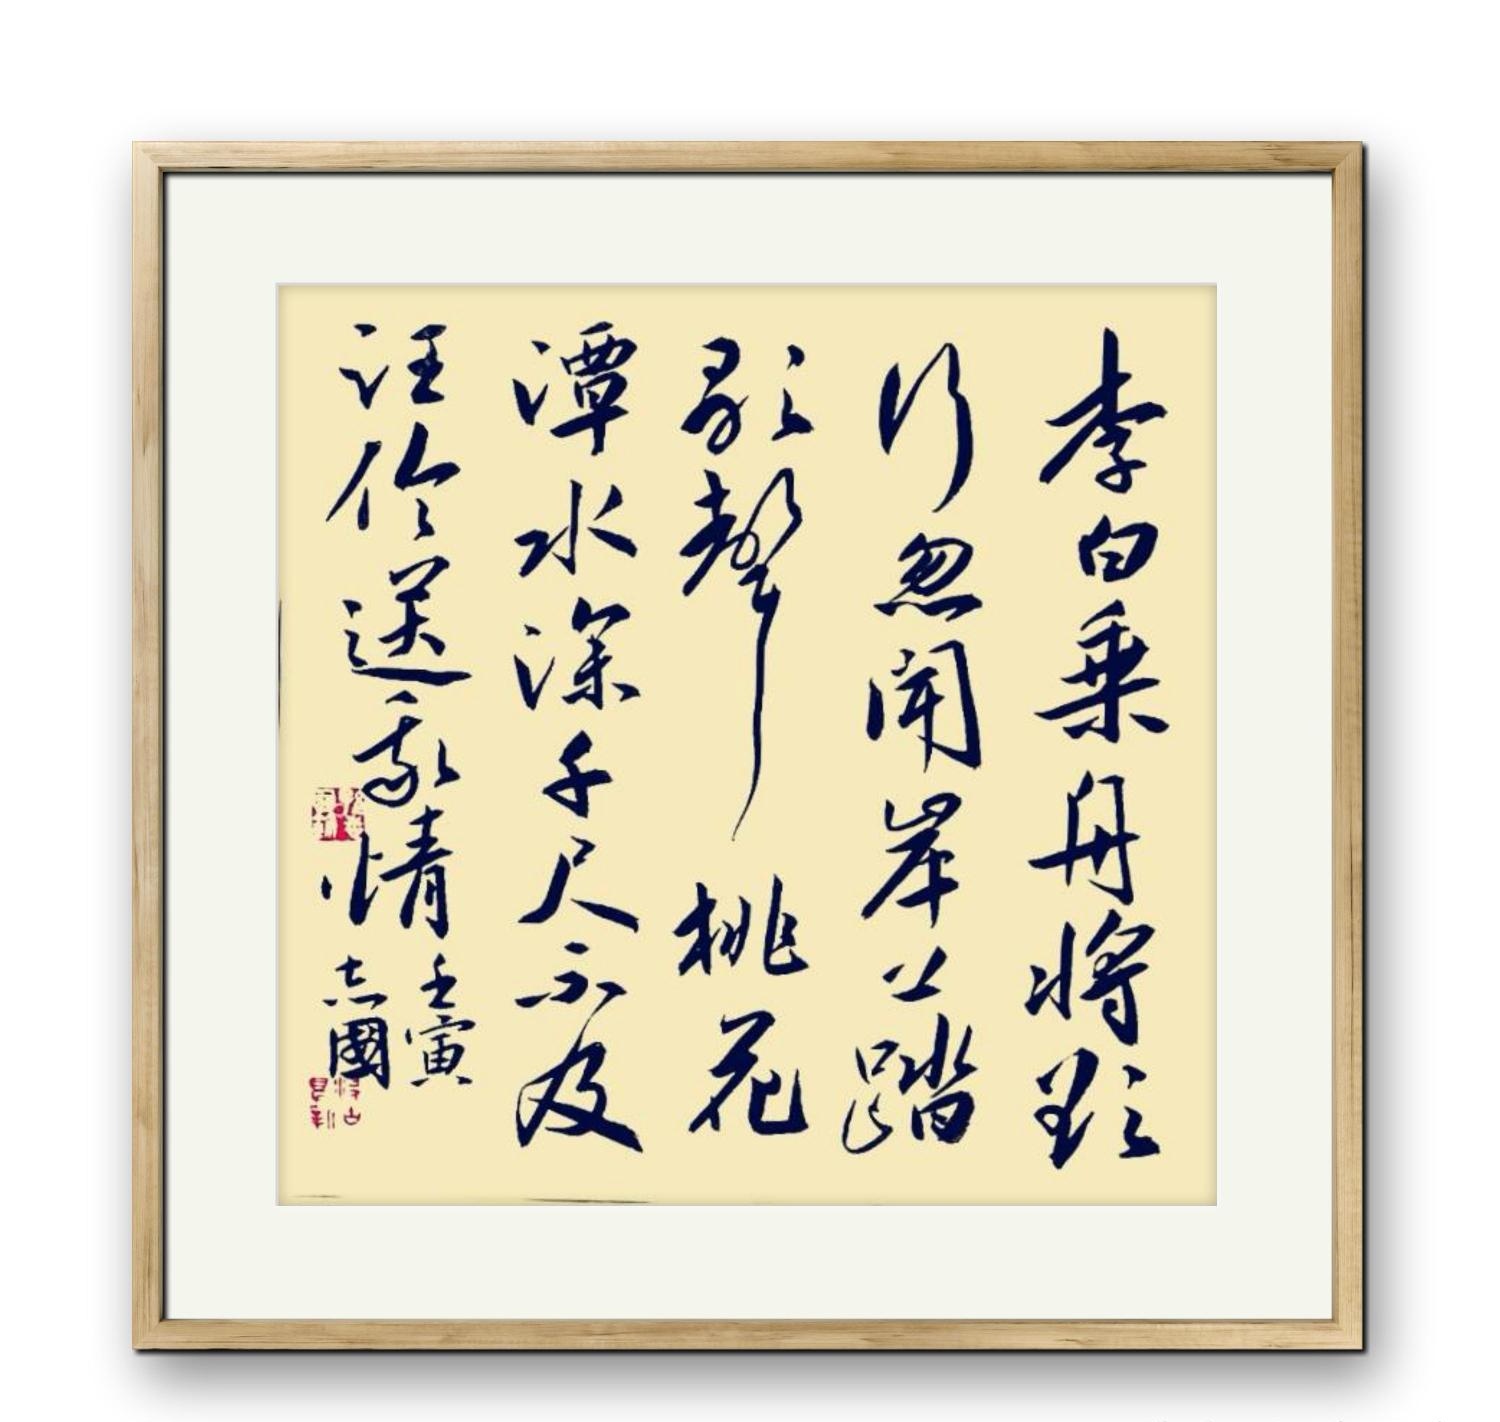 李白乘舟將欲
行忽聞岸上踏
歌聲桃花
潭水深千尺不及
汪伦送我情
壬寅
志國